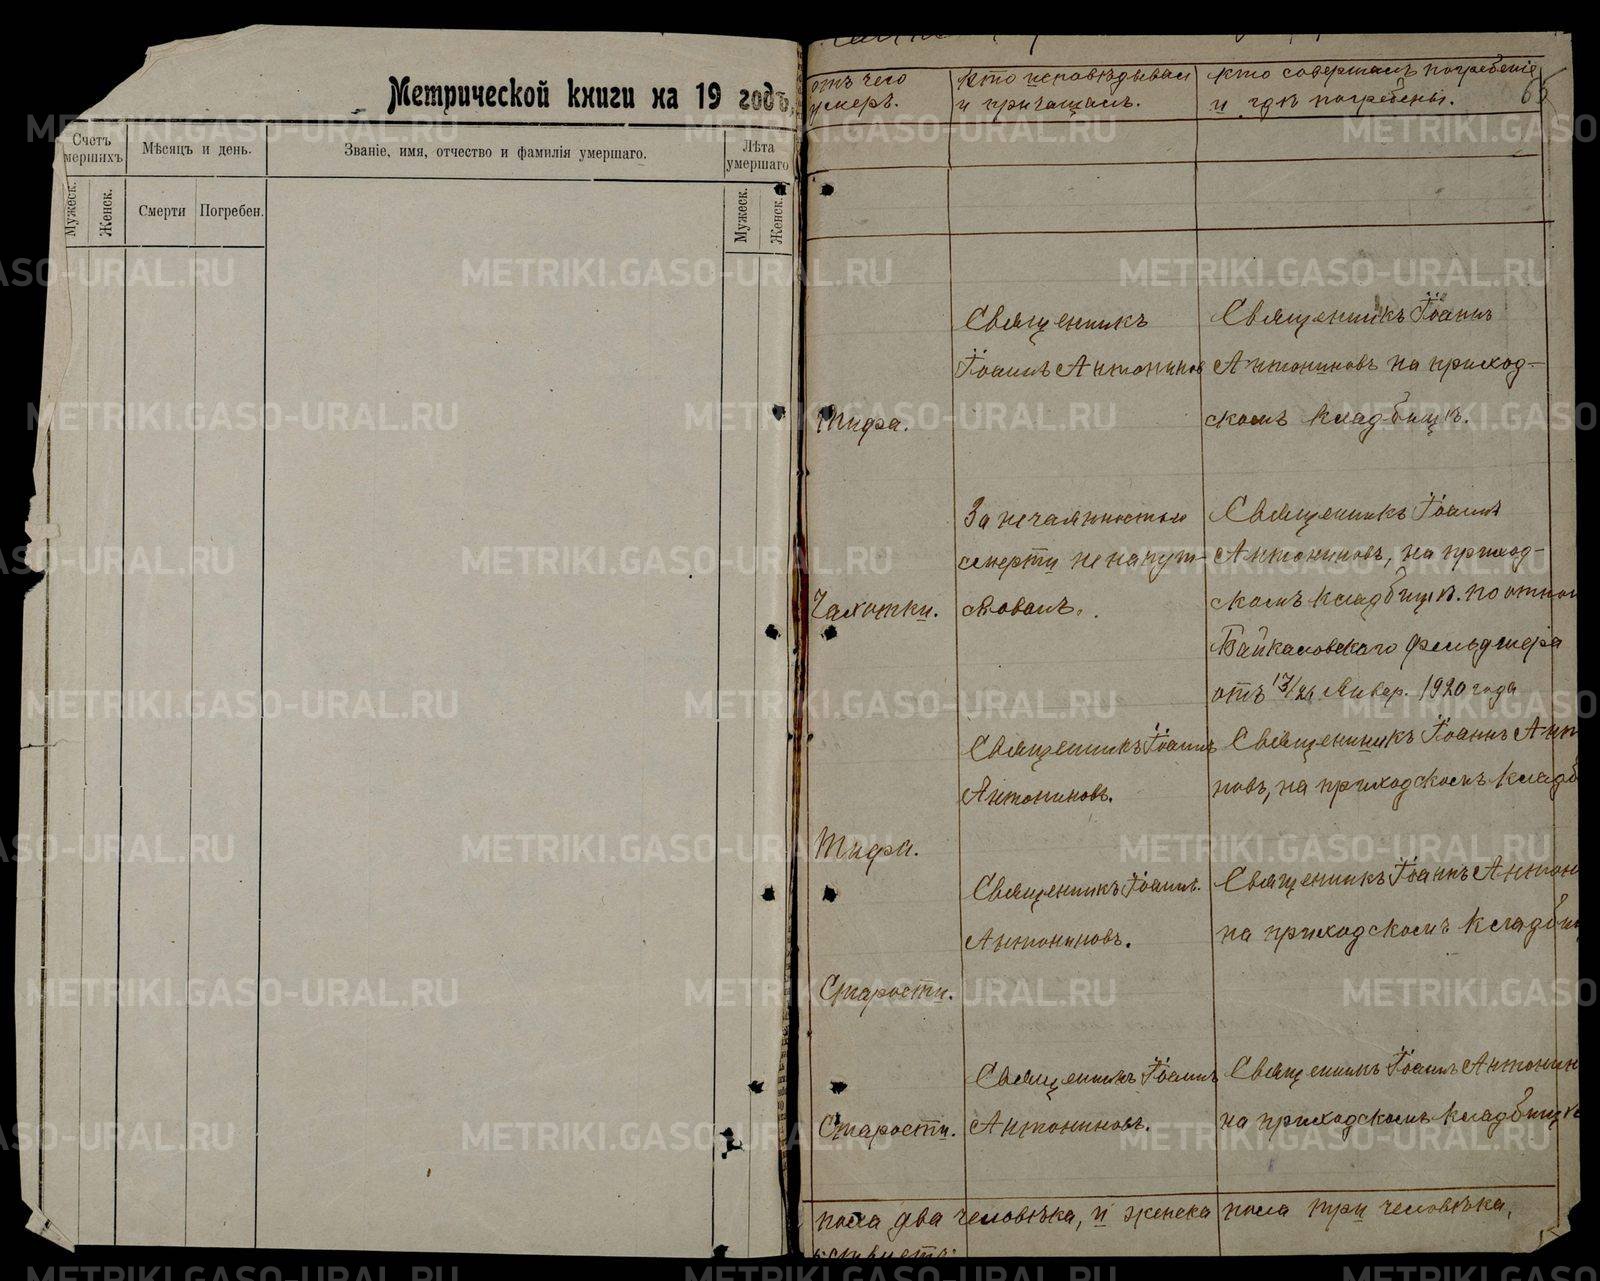 Метрической книги на 19 годъ
Счетъ
мершихъ
Мѣсяцъ и день.
Званіе, имя, отчество и фамилія умершаго.
Лѣта
умершаго
Мужеск.
Женск.
Смерти
Погребен.
Мужеск.
Женск.
65
отъ чего
умеръ.
Кто исповѣдывал
и причащалъ.
Кто совершалъ погребеніе
и гдѣ погребены.
Тифа.
Священникъ
Іоаннъ Антонинов
Священникъ Іоаннъ
Антониновъ на приход-
скомъ кладбищѣ.
Чахотки.
За нечаянностью
смерти не напут-
ствованъ.
Священникъ Іоаннъ
Антониновъ, на приход-
скомъ кладбищѣ. по отнош
Байкаловскаго фельдшера
отъ 13/26 Январ. 1920 года
Тифа.
Священникъ Іоаннъ
Антониновъ.
Священникъ Іоаннъ Ант
новъ, на приходскомъ кладб
Старости.
Священникъ Іоаннъ
Антониновъ.
Священникъ Іоаннъ Антон
на приходскомъ кладбищ
Старости.
Священникъ Іоаннъ
Антониновъ.
Священникъ Іоаннъ Антонин
на приходскомъ кладбищѣ
пола два человѣка, и женска пола три человѣка,
METRIKI.GASO-URAL.RU